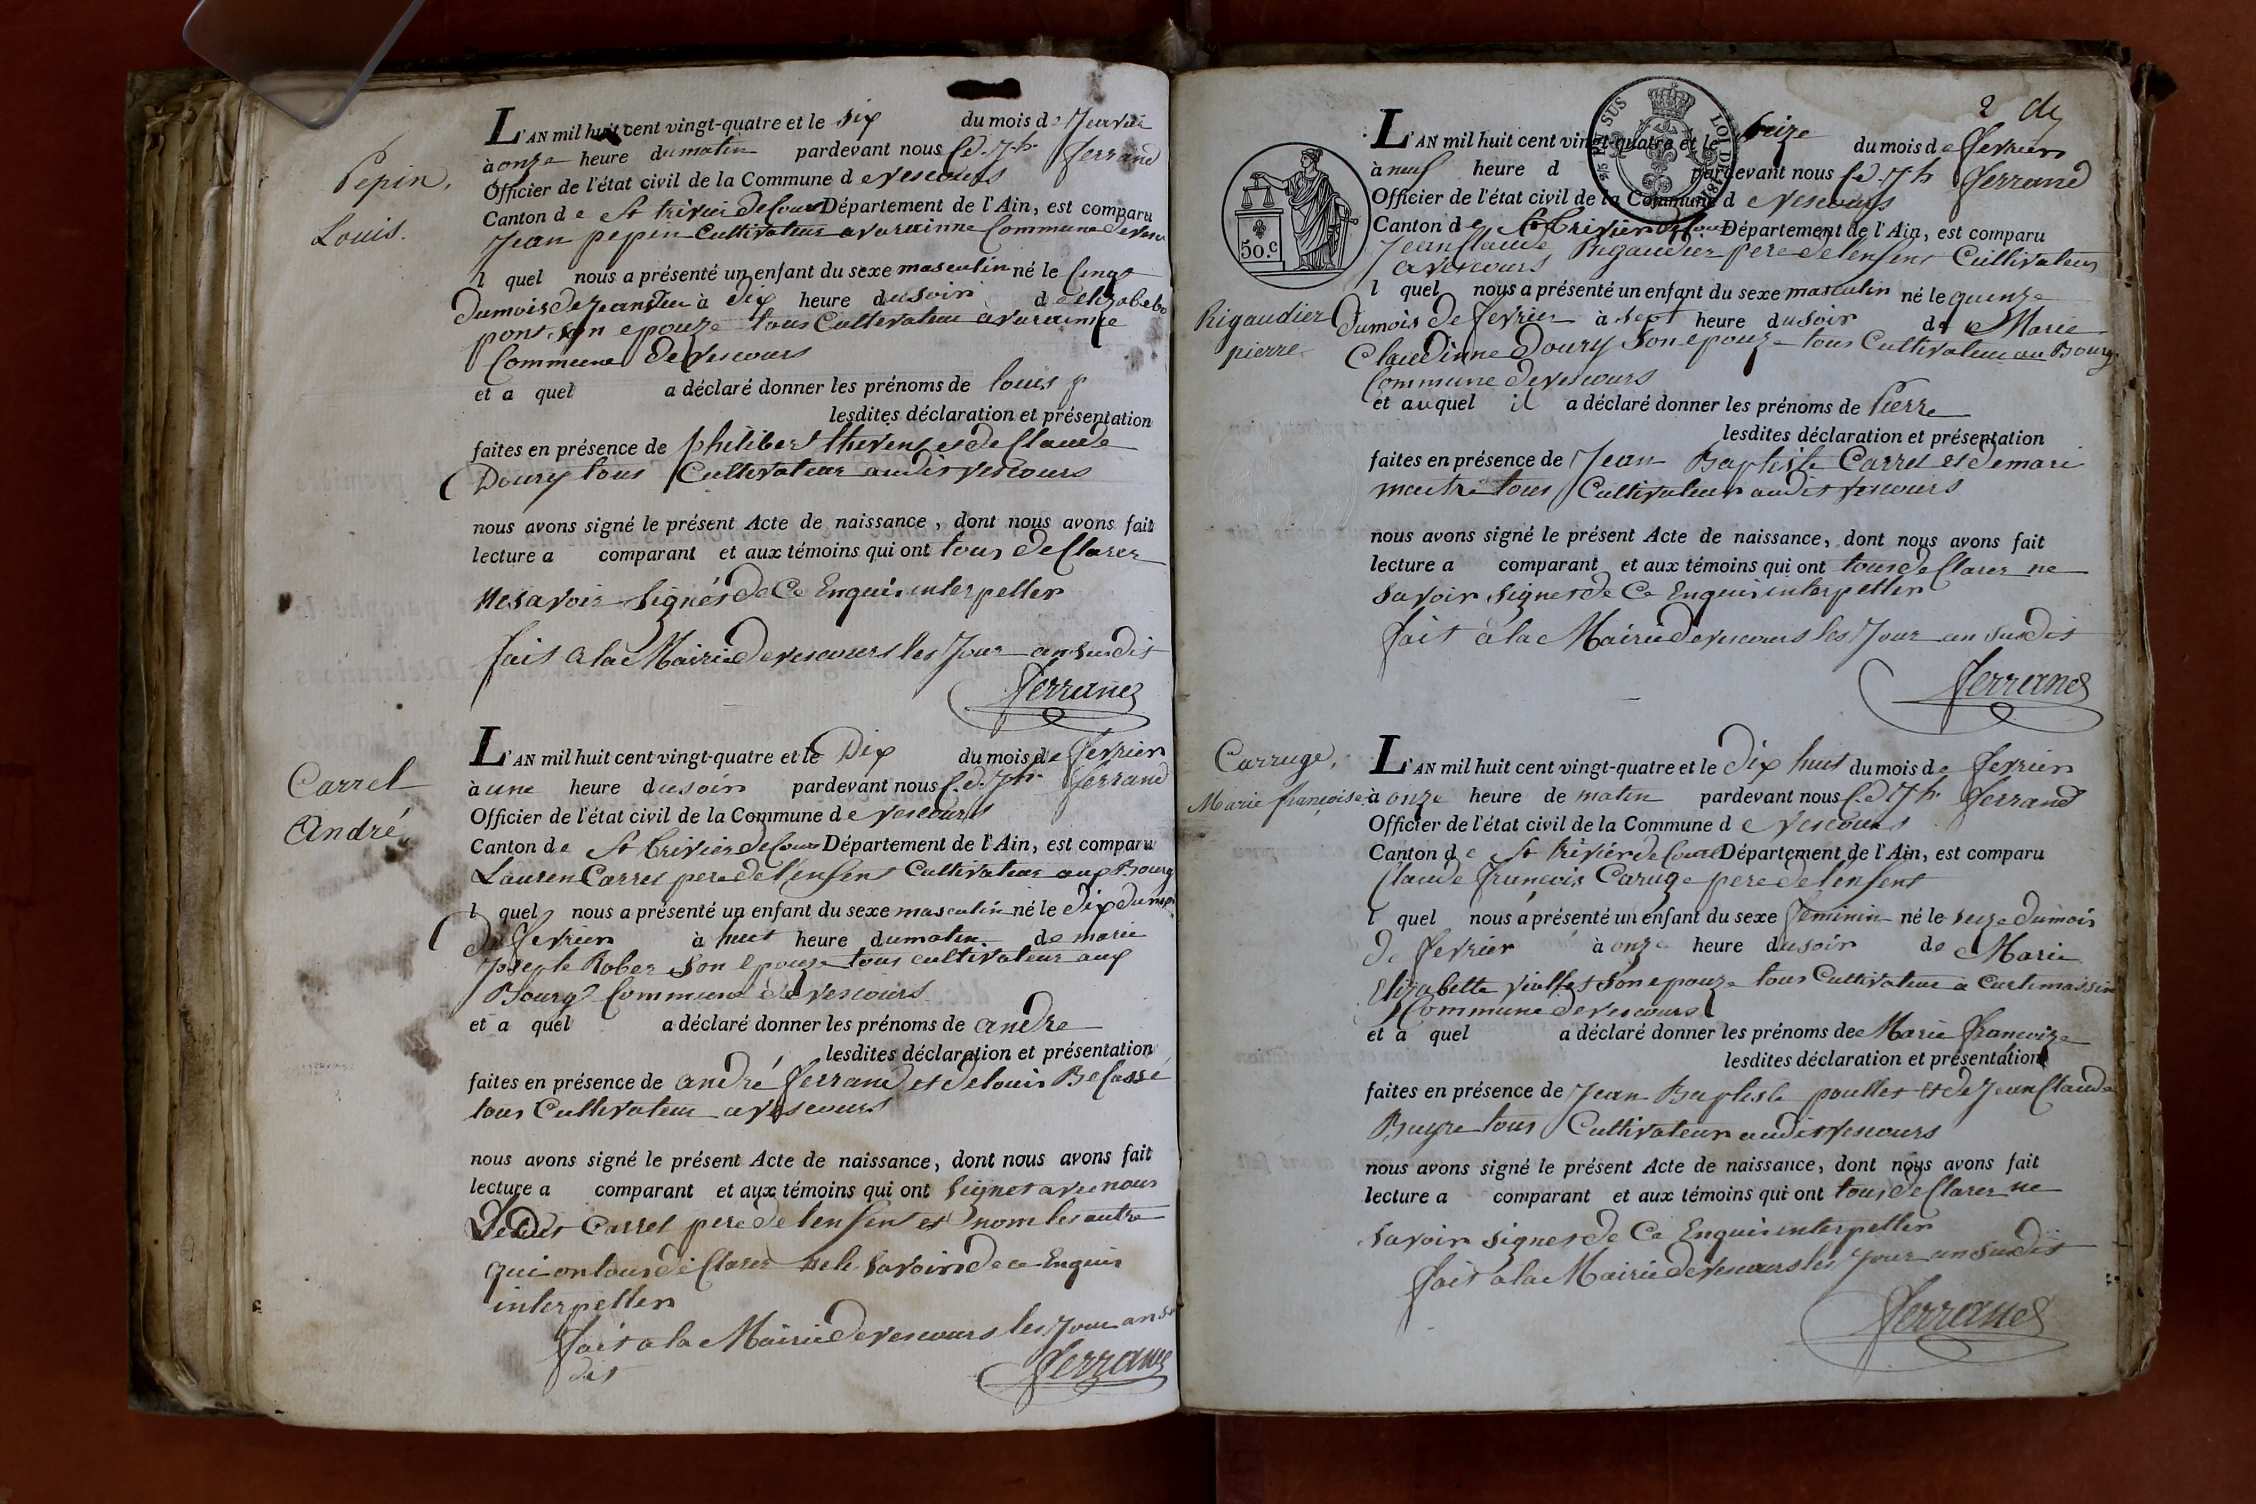 Pepin,
Louis.
L'AN mil huit cent vingt-quatre et le six du mois de Janvier
à onze heure du matin pardevant nous Cd. Jh. ferrand
Officier de l'état civil de la Commune de vescours
Canton de St trivier de Cour Département de l'Ain, est comparu
Jean pepin Cultivateur a varainne Commune de
l quel nous a présenté un enfant du sexe masculin né le Cinq
du mois de Janvier à dix heure du soir de
pont son epouze tous Cultivateur a varainne
Commune de vescours
et a quel a déclaré donner les prénoms de louis
lesdites déclaration et présentation
faites en présence de philibert thevenet et de Claude
Doury tous Cultivateur audit vescours
nous avons signé le présent Acte de naissance, dont nous avons fait
lecture a comparant et aux témoins qui ont tous de Clarer
ne savoir signer de Ce Enquis interpeller
fait a la Mairie de vescours les Jour an susdit
ferrand
Carrel
André
L'AN mil huit cent vingt-quatre et le Dix du mois de fevrier
à une heure du soir pardevant nous C. d. Jh. ferrand
Officier de l'état civil de la Commune de vescours
Canton de St trivier de Cour Département de l'Ain, est comparu
Lauren Carrel pere de lenfent Cultivateur aux Bourg
l quel nous a présenté un enfant du sexe masculin né le dix du mois
de fevrier à huit heure du matin de marie
Josephte Rober son Epouze tous cultivateur aux
Bourg Commune de vescours
et a quel a déclaré donner les prénoms de andre
lesdites déclaration et présentation
faites en présence de andré ferrand et de louis
tous Cultivateur a vescours
nous avons signé le présent Acte de naissance, dont nous avons fait
lecture a comparant et aux témoins qui ont signer avec nous
Ledit Carrel pere de lenfent et nom les autre
qui on tous de Clarer ne le savoir de ce Enquis
interpeller
fait a la Mairie de vescours les Jour an
dit
ferrand
2 de
5/e EN SUS
LOI DE 1816
50.c
Rigaudier
pierre
L'AN mil huit cent vingt-quatre et le seize du mois de fevrier
à neuf heure d pardevant nous Cd. Jh ferrand
Officier de l'état civil de la Commune de vescours
Canton de St trivier de Cour Département de l'Ain, est comparu
Jean Claude Rigaudier pere de lenfent Cultivateur
a vescours
l quel nous a présenté un enfant du sexe masculin né le quinze
du mois de fevrier à sept heure du soir de Marie
Claudinne Doury son epouz tous Cultivateur au Bourg
Commune de vescours
et auquel il a déclaré donner les prénoms de Pierre
lesdites déclaration et présentation
faites en présence de Jean Baptiste Carrel et de mari
maitre tous Cultivateur audit vescours
nous avons signé le présent Acte de naissance, dont nous avons fait
lecture a comparant et aux témoins qui ont tous de Clarer ne
savoir signer de Ce Enquis interpeller
fait a la Mairie de vescours les Jour an susdit
ferrand
Carruge,
Marie françoise
L'AN mil huit cent vingt-quatre et le dix huit du mois de fevrier
à onze heure de matin pardevant nous C. d. Jh. ferrand
Officier de l'état civil de la Commune de vescours
Canton de St trivier de Cour Département de l'Ain, est comparu
Claude francois Caruge pere de lenfent
l quel nous a présenté un enfant du sexe feminin né le seize du mois
de fevrier à onze heure du soir de Marie
Elizabette viollet son epouze tous Cultivateur a Curtimassin
Commune de vescours
et a quel a déclaré donner les prénoms de Marie francoize
lesdites déclaration et présentation
faites en présence de Jean Baptiste poullet et de Jean Claude
Buyre tous Cultivateur audit vescours
nous avons signé le présent Acte de naissance, dont nous avons fait
lecture a comparant et aux témoins qui ont tous de Clarer ne
savoir signer de Ce Enquis interpeller
fait a la Mairie de vescours les Jour an susdit
ferrand